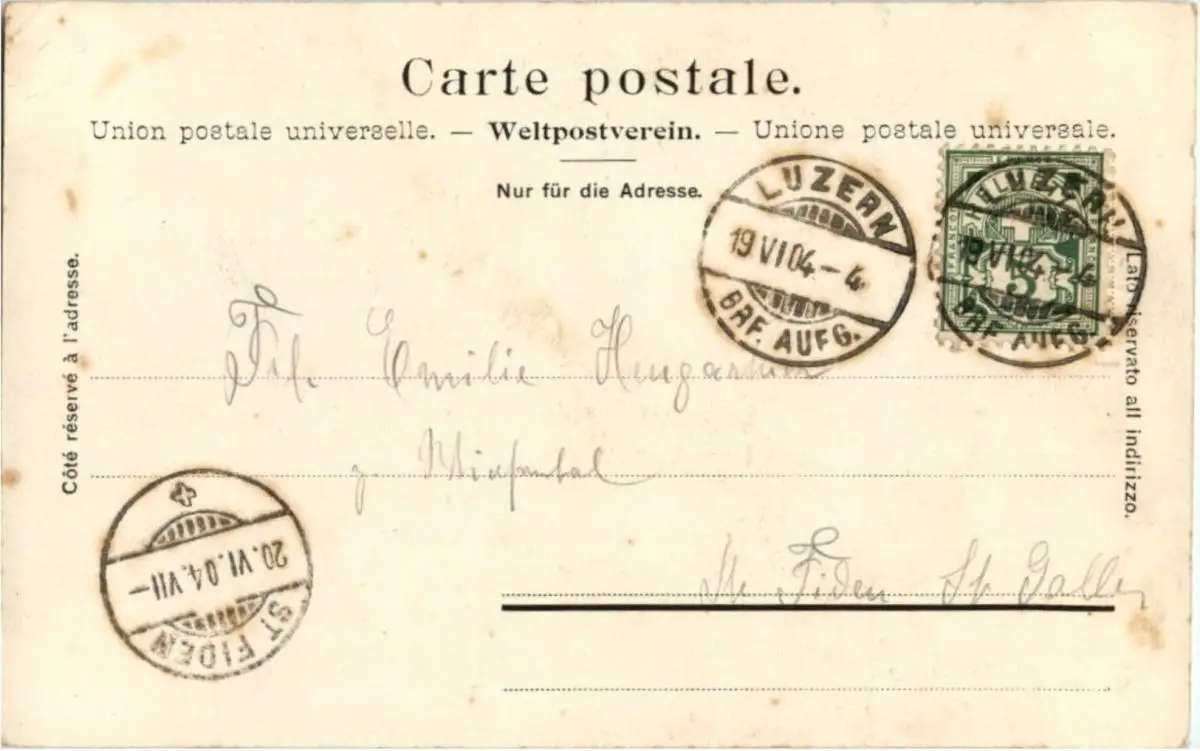 Carte postale.
Union postale universelle. — Weltpostverein. — Unione postale universale.
Nur für die Adresse.
Côté réservé à l'adresse.
Lato riservato all indirizzo.
LUZERN
19 VI 04 – 4
BRF. AUFG.
HELVETIA
FRANCO
5
LUZERN
19 VI 04 – 4
BRF. AUFG.
Frl. Emilie
z.
St. Fiden St. Gallen
20. VI. 04. VII –
ST FIDEN